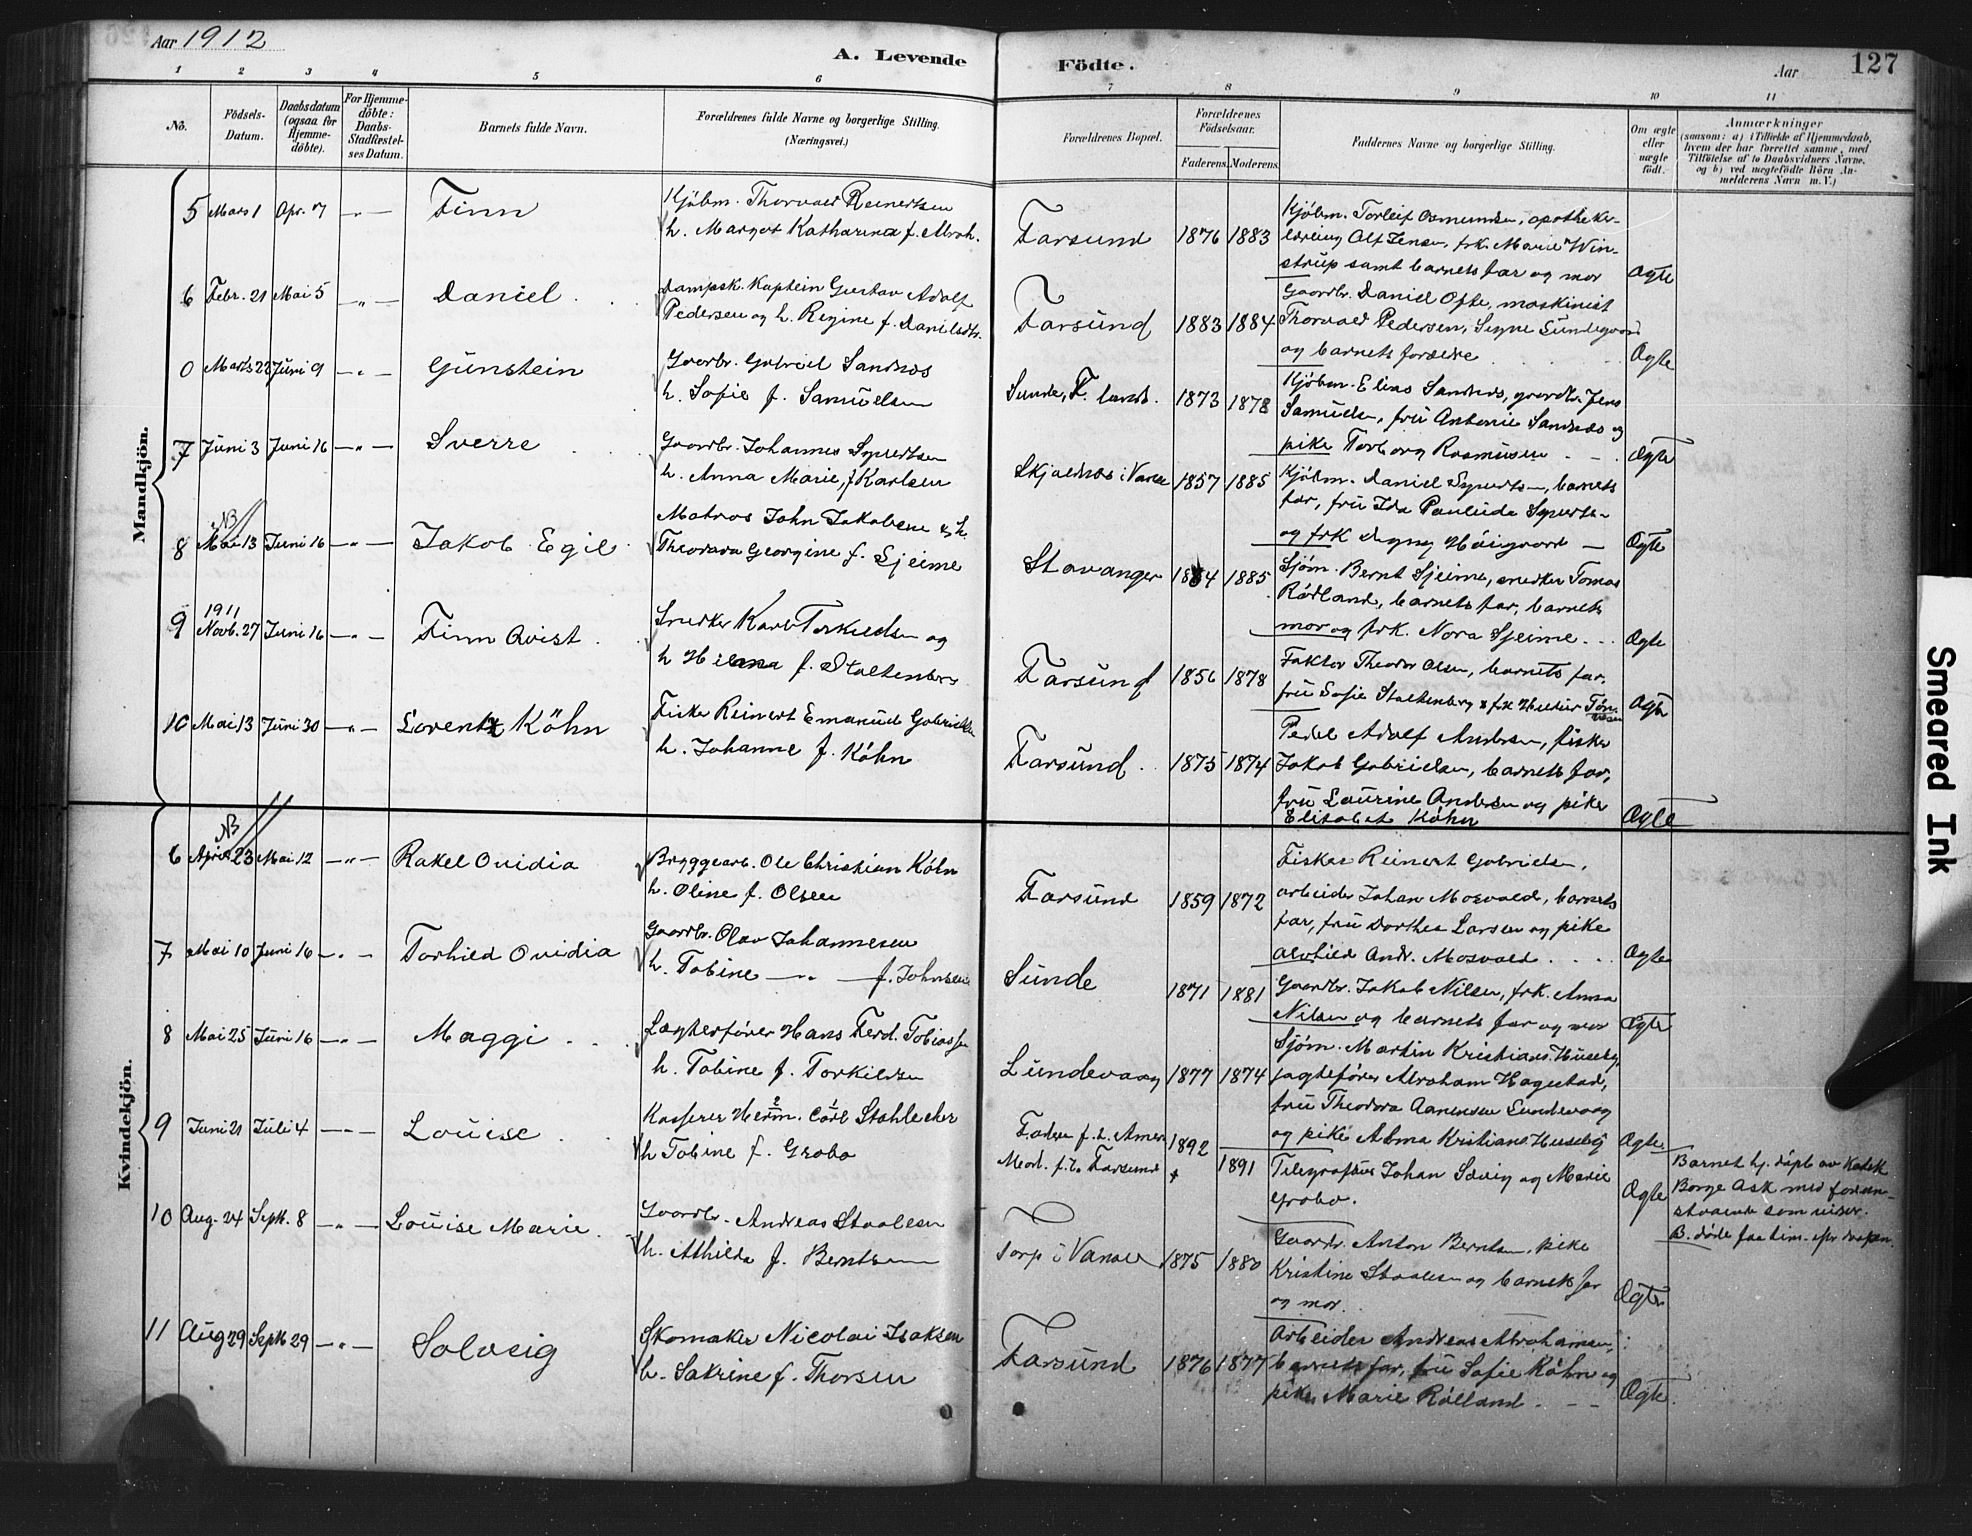 Aar 1912
A. Levende Födte.
Aar 127
1 2 3 4 5 6 7 8 9 10 11
No.
Födsels-Datum.
Daabsdatum (ogsaa for Hjemme-döbte).
For Hjemme-döbte: Daabs-Stadfæstel-ses Datum.
Barnets fulde Navn.
Forældrenes fulde Navne og borgerlige Stilling. (Næringsvei.)
Forældrenes Bopæl.
Forældrenes Födselsaar.
Faderens. Moderens.
Faddernes Navne og borgerlige Stilling.
Om ægte eller uægte födt.
Anmærkninger
(saasom: a) i Tilfælde af Hjemmedaab,
hvem der har forrettet samme, med
Tilföielse af to Daabsvidners Navne,
og b) ved uægtefödte Börn An-
melderens Navn m. V.)
Mandkjön.
5 Mars 1 Apr. 7 -„- Finn
Kjöbm. Thorvald Reinertsen
h. Margot Katharina f. Abrah.
Farsund 1876 1883
Kjöbm. Torleif Osmundsen, apotheker-
lærling Alf Jensen, frk. Marie Win-
strup samt barnets far og mor Ægte
6 Febr. 21 Mai 5 -„- Daniel
Dampsk. Kaptein Gustav Adolf
Pedersen og h. Regine f. Danielsdtr.
Farsund 1883 1884
Gaardbr. Daniel Ofte, maskinist
Thorvald Pedersen, Signe Sundegaard
og barnets forældre Ægte
0 Marts 22 Juni 9 -„- Gunstein
Gaardbr. Gabriel Sandnes
h. Sofie f. Samuelsen
Sunde, F. lands. 1873 1878
Kjöbm. Elias Sandnes, gaardbr. Jens
Samuelsen, fru Antonie Sandnes og
pike Torborg Rasmusen Ægte
7 Juni 3 Juni 16 -„- Sverre
Gaardbr. Johannes Syvertsen
h. Anna Marie, f. Karlsen
Skjoldnes i Vanse 1857 1885
Kjöbm. Daniel Syvertsen, barnets
far, fru Ida Paulida Syvertsen
og frk Dagny Höigaard Ægte
NB
8 Mai 13 Juni 16 -„- Jakob Egil
Matros John Jakobsen & h.
Theodora Georgine f. Sjeime
Stavanger 1884 1885
Sjöm. Bernt Sjeime, snedker Tomas
Rödland, barnets far, barnets
mor og frk. Nora Sjeime Ægte
1911
9 Novb. 27 Juni 16 -„- Finn Qvist
Snedker Karl Torkildsen og
h Hilma f. Stoltenberg
Farsund 1856 1878
Faktor Theodor Olsen, barnets far,
fru Sofie Stoltenberg & frk Hulda Tön-
nesen Ægte
10 Mai 13 Juni 30 -„- Lorentz Köhn
Fisker Reinert Emanuel Gabrielsen
h. Johanne f. Köhn
Farsund 1875 1874
Pedel Adolf Andersen, fisker
Jakob Gabrielsen, barnets far,
fru Laurine Andersen og pike
Elisabet Köhn Ægte
Kvindekjön.
NB
6 April 23 Mai 12 -„- Rakel Ovidia
Bryggearb. Ole Christian Köhn
h. Oline f. Olsen
Farsund 1859 1872
Fisker Reinert Gabrielsen,
arbeider Johan Mosvold, barnets
far, fru Dorthea Larsen og pike
Alvhild Andr. Mosvold Ægte
7 Mai 10 Juni 16 -„- Torhild Ovidia
Gaardbr. Olav Johannesen
h. Tobine -„- f. Johnsen
Sunde 1871 1881
Gaardbr. Jakob Nilsen, frk. Anna
Nilsen og barnets far og mor Ægte
8 Mai 25 Juni 16 -„- Maggi
Lægterförer Hans Ferd. Tobiassen
h. Tobine f. Torkildsen
Lundevaag 1877 1874
Sjöm. Martin Kristians. Huseby,
jagtförer Abraham Hagestad,
fru Theodora Aanensen Lundevaag
og pike Alma Kristians. Huseby Ægte
9 Juni 21 Juli 4 -„- Louise
Kasserer Herm. Carl Stahlecker
2 1
h Tobine f. Grobo
Faderen f. i. Amer. 1892
Mod. f. i. Farsund 1891
Telegrafbud Johan Sævig og Marie
Grobo. Ægte
Barnet hj. döpt av Kadek
Borge Ask med foran-
staaende som vidner.
B. döde faa tim. efter daapen.
10 Aug. 24 Sept. 8 -„- Louise Marie
Gaardbr. Andreas Staalesen
h. Athilda f. Berntsen
Torp i Vanse 1875 1880
Gaardbr. Anton Berntsen, pike
Kristine Staalesen og barnets far
og mor. Ægte
11 Aug 29 Sept 29 -„- Solveig
Skomaker Nicolai Isaksen
h. Sakrine f. Thorsen
Farsund 1876 1877
Arbeider Andreas Abrahamsen,
barnets far, fru Sofie Köhn og
pike Marie Rölland Ægte
Smeared Ink